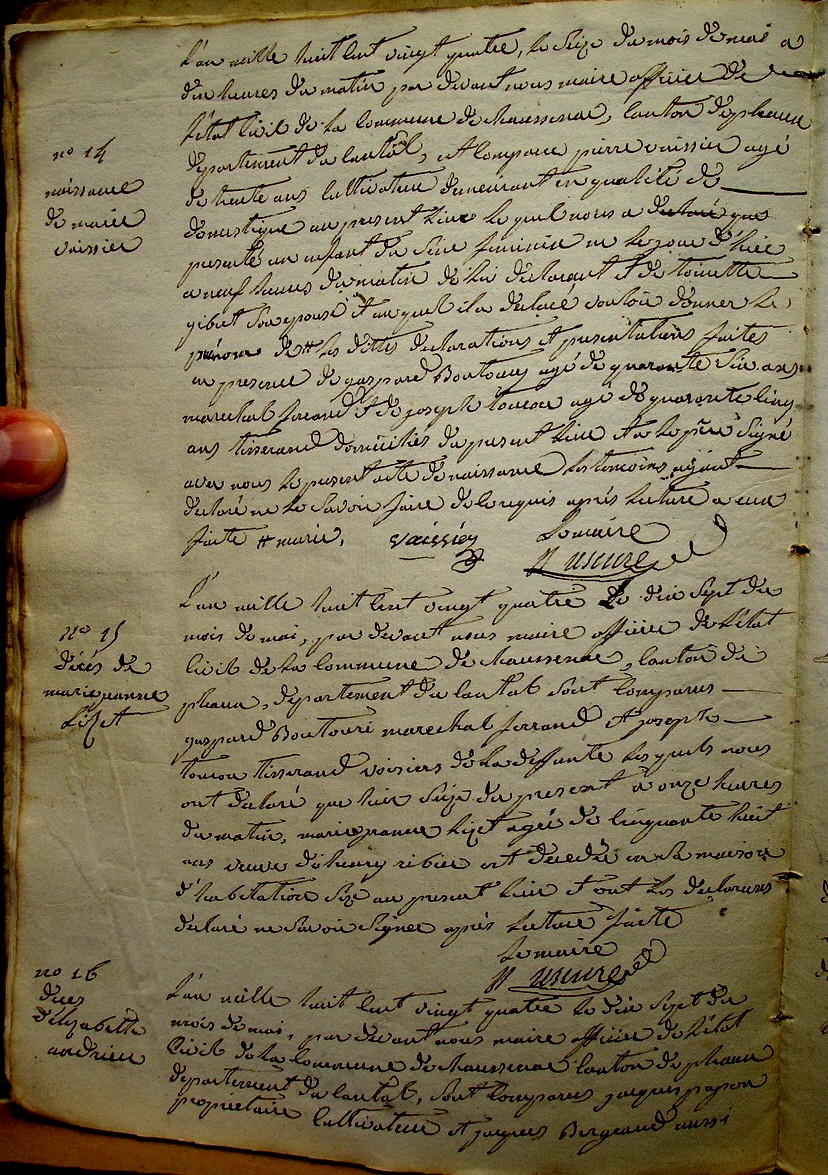 n° 14
naissance
de marie
vaissier
L'an mille huit cent vingt quatre, le seize du mois de mai a
dix heures du matin par devant nous maire officier de
l'état civil de la commune de chaussenac, canton de pleaux
département du cantal, est comparu pierre vaissier agé
de trente ans cultivateur demeurant en qualité de
domestique au present lieu le quel nous a declaré que
presenté un enfant du sexe feminin né le jour d'hier
a neuf heures du matin de lui declarant et de toinette
gibert son epouse et au quel il a declaré vouloir donner le
prénom de # les dittes declarations et presentations faites
en presence de gaspard Boutoury agé de quarante six ans
marechal ferrand et de joseph toucou agé de quarante cinq
ans tisserand domiciliés du present lieu et a le père signé
avec nous le present acte de naissance les temoins ayant
declaré ne le savoir faire de ce requis après lecture a eux
faite # marie. vaissier Le maire
n° 15
décés de
marie jeanne
lizet
L'an mille huit cent vingt quatre le dix sept du
mois de mai, par devant nous maire officier de l'état
civil de la commune de chaussenac, canton de
pleaux, département du cantal sont comparus
gaspard Boutouri marechal ferrand et joseph
toucou tisserand voisins de la deffunte les quels nous
ont declaré que hier seize du present a onze heures
du matin, marie jeanne lizet agée de cinquante huit
ans veuve d'henry ribier est decedée en sa maison
d'habitation sise au present lieu et ont les declarans
declaré ne savoir signer après lecture faite
Le maire
n° 16
deces
d'elizabette
andrieu
L'an mille huit cent vingt quatre le dix sept du
mois de mai, par devant nous maire officier de l'état
civil de la commune de chaussenac canton de pleaux
département du cantal, sont comparus jacques pajou
propriétaire cultivateur et jacques Bergeaud aussi